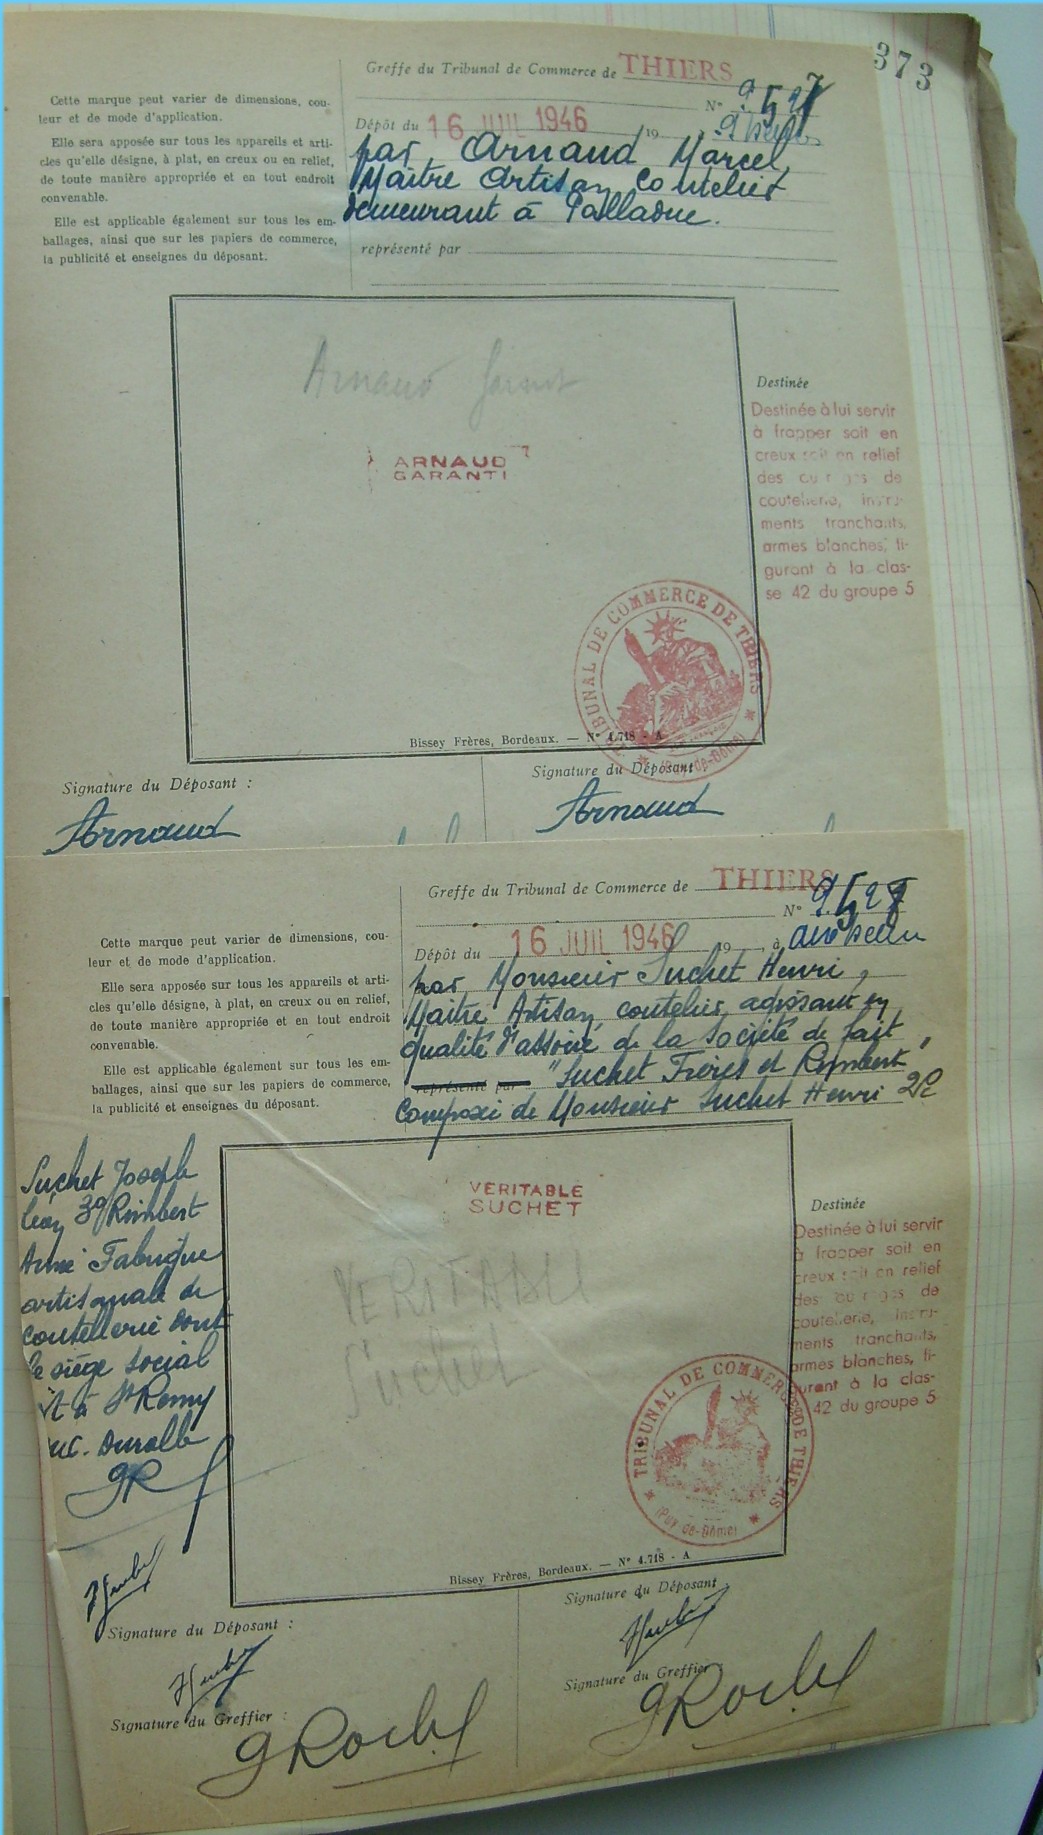 373
Greffe du Tribunal de Commerce de THIERS
N°
Dépôt du 16 JUIL 1946 19
par Arnaud Marcel
Maître Artisan Coutelier
demeurant à Palladuc.
représenté par
Cette marque peut varier de dimensions, cou-
leur et de mode d'application.
Elle sera apposée sur tous les appareils et arti-
cles qu'elle désigne, à plat, en creux ou en relief,
de toute manière appropriée et en tout endroit
convenable.
Elle est applicable également sur tous les em-
ballages, ainsi que sur les papiers de commerce,
la publicité et enseignes du déposant.
Arnaud
ARNAUD
GARANTI
Destinée
Destinée à lui servir
à frapper soit en
creux soit en relief
des de
coutellerie, instru-
ments tranchants,
armes blanches, fi-
gurant à la clas-
se 42 du groupe 5
TRIBUNAL DE COMMERCE DE THIERS
(Puy-de-Dôme)
Bissey Frères, Bordeaux. — N° 4.718 - A
Signature du Déposant :
Arnaud
Signature du Déposant
Arnaud
Greffe du Tribunal de Commerce de THIERS
N°
Dépôt du 16 JUIL 1946 19 , à
par Monsieur Suchet Henri,
Maître Artisan coutelier, agissant en
qualité d'associé de la Société de fait
représenté par "Suchet Frères et Rimbert"
composée de Monsieur Suchet Henri 2°
Cette marque peut varier de dimensions, cou-
leur et de mode d'application.
Elle sera apposée sur tous les appareils et arti-
cles qu'elle désigne, à plat, en creux ou en relief,
de toute manière appropriée et en tout endroit
convenable.
Elle est applicable également sur tous les em-
ballages, ainsi que sur les papiers de commerce,
la publicité et enseignes du déposant.
Suchet Joseph
3° Rimbert
Fabrique
artisanale de
coutellerie dont
le siège social
à St Remy
GR
VERITABLE
SUCHET
VERITABLE
Suchet
Destinée
Destinée à lui servir
à frapper soit en
creux soit en relief
des de
coutellerie, instru-
ments tranchants,
armes blanches, fi-
gurant à la clas-
42 du groupe 5
TRIBUNAL DE COMMERCE DE THIERS
(Puy-de-Dôme)
Bissey Frères, Bordeaux. — N° 4.718 - A
Signature du Déposant :
Signature du Déposant
Signature du Greffier :
Signature du Greffier